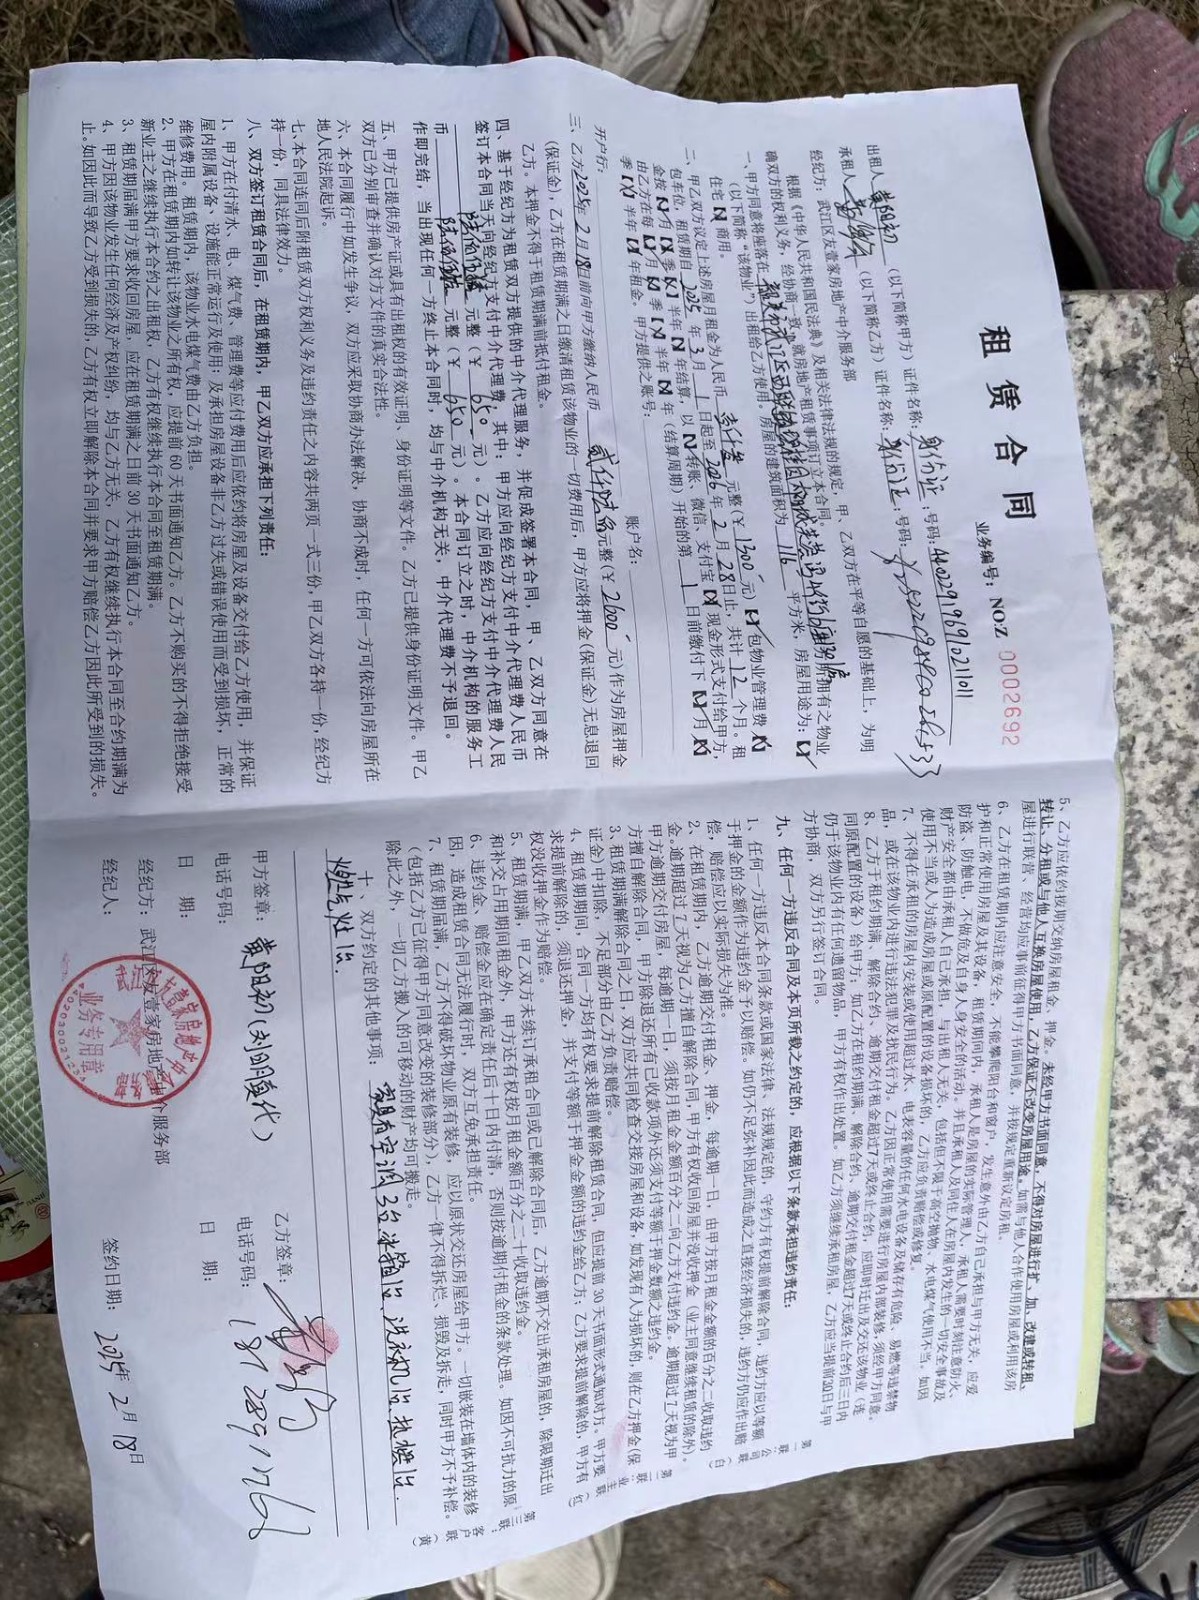 租赁合同
业务编号：NO:Z 0002692
出租人 黄阳初 （以下简称甲方）证件名称：身份证 ；号码：
承租人 （以下简称乙方）证件名称：身份证 ；号码：
经纪方：武江区友壹家房地产中介服务部
根据《中华人民共和国民法典》及相关法律法规的规定，甲、乙双方在平等自愿的基础上，为明
确双方的权利义务，经协商一致，就房地产租赁事项订立本合同。
一、甲方同意将座落在 所拥有之物业
（以下简称“该物业”）出租给乙方使用，房屋的建筑面积为 116 平方米，房屋用途为：
住宅 商用。
二、甲乙双方议定上述房屋月租金为人民币 壹仟叁 元整（￥ 1300 元） 包物业管理费
包车位，租赁期自 2025 年 3 月 1 日起至 2026 年 2 月 28 日止，共计 12 个月。租
金按 月 季 半年 年结算，以 转账、微信、支付宝 现金形式支付给甲方，
由乙方在每 月 季 半年 年（结算周期）开始的第 1 日前缴付下 月
季 半年 年租金。甲方提供之账号：
开户行： 账户名：
三、乙方 2025 年 2 月 18 日前向甲方缴纳人民币 贰仟陆佰 元整（￥ 2600 元）作为房屋押金
（保证金），乙方在租赁期满之日缴清租赁该物业的一切费用后，甲方应将押金（保证金）无息退回
乙方。本押金不得于租赁期满前抵付租金。
四、基于经纪方为租赁双方提供的中介代理服务，并促成签署本合同，甲、乙双方同意在
签订本合同当天向经纪方支付中介代理费，其中：甲方应向经纪方支付中介代理费人民币
陆佰伍拾 元整（￥ 650 元）。乙方应向经纪方支付中介代理费人民
币 陆佰伍拾 元整（￥ 650 元）。本合同订立之时，中介机构的服务工
作即完结，当出现任何一方终止本合同时，均与中介机构无关，中介代理费不予退回。
五、甲方已提供房产证或具有出租权的有效证明、身份证明等文件。乙方已提供身份证明文件。甲乙
双方已分别审查并确认对方文件的真实合法性。
六、本合同履行中如发生争议，双方应采取协商办法解决，协商不成时，任何一方可依法向房屋所在
地人民法院起诉。
七、本合同连同后附租赁双方权利义务及违约责任之内容共两页一式三份，甲乙双方各持一份，经纪方
持一份，同具法律效力。
八、双方签订租赁合同后，在租赁期内，甲乙双方应承担下列责任：
1、甲方在付清水、电、煤气费、管理费等应付费用后应依约将房屋及设备交付给乙方使用，并保证
屋内附属设备、设施能正常运行及使用；及承担房屋设备非乙方过失或错误使用而受到损坏，正常的
维修费用。租赁期内，该物业水电煤气费由乙方负担。
2、甲方在租赁期内如转让该物业之所有权，应提前 60 天书面通知乙方。乙方不购买的不得拒绝接受
新业主之继续执行本合约之出租权，乙方有权继续执行本合同至租赁期满。
3、租赁期届满甲方要求收回房屋，应在租赁期满之日前 30 天书面通知乙方。
4、甲方因该物业发生任何经济及产权纠纷，均与乙方无关，乙方有权继续执行本合同至合约期满为
止。如因此而导致乙方受到损失的，乙方有权立即解除本合同并要求甲方赔偿乙方因此所受到的损失。
5、乙方应依约按期交纳房屋租金、押金。未经甲方书面同意，不得对房屋进行扩、加、改建或转租、
转让、分租或与他人互换房屋使用，乙方保证不改变房屋用途。如需与他人合作使用房屋或利用该房
屋进行联营、经营均应事前征得甲方书面同意，并按规定重新议定房租。
6、乙方在租赁期内应注意安全，不能攀爬阳台和窗户，发生意外由乙方自己承担与甲方无关，应爱
护和正常使用房屋及其设备，租赁期间内，承租人是房屋的实际管理人，承租人需要时刻注意防火、
防盗、防触电，不做危及自身人身安全的活动，并且承租人及同住人在房屋内发生的一切安全事故及
财产安全都由承租人自己承担，与出租人无关，包括但不限于高空抛物、水电煤气使用不当。如因
使用不当或人为造成房屋或原配置的设备损坏的，乙方应负责赔偿或修复。
7、不得在承租的房屋内安装或使用超过水、电表容量的任何水电设备及储存有危险、易燃等违禁物
品，或在该物业内进行违法犯罪及扰民行为。乙方因正常使用需要进行房屋内部装修，须经甲方同意。
8、乙方于租约期满、解除合约、逾期交付租金超过7天或终止合约，应即时迁出及交还该物业（连
同原配置的设备）给甲方；如乙方在租约期满、解除合约、逾期交付租金超过7天或终止合约后三日内
仍于该物业内有任何遗留物品，甲方有权作出处置。如乙方须继续承租房屋，乙方应当提前30日与甲
方协商，双方另行签订合同。
九、任何一方违反合同及本页所载之约定的，应根据以下条款承担违约责任：
1、任何一方违反本合同条款或国家法律、法规规定的，守约方有权提前解除合同，违约方应以等额
于押金的金额作为违约金予以赔偿。如仍不足弥补因此而造成之直接经济损失的，违约方仍应作出赔
偿，赔偿应以实际损失为准。
2、在租赁期内，乙方逾期交付租金、押金，每逾期一日，由甲方按月租金金额的百分之二收取违约
金，逾期超过 7 天视为乙方擅自解除合同，甲方有权收回房屋并没收押金（业主同意继续租赁的除外）。
甲方逾期交付房屋，每逾期一日，须按月租金金额百分之二向乙方支付违约金，逾期超过 7 天视为甲
方擅自解除合同，甲方除退还所有已收款项外还须支付等额于押金数额之违约金。
3、租赁期满解除合同之日，双方应共同检查交接房屋和设备，如发现有人为损坏的，则在乙方押金（保
证金）中扣除，不足部分由乙方负责赔偿。
4、租赁期间，合同一方均有权要求提前解除租赁合同，但应提前 30 天书面形式通知对方。甲方要
求提前解除的，须退还押金，并支付等额于押金金额的违约金给乙方；乙方要求提前解除的，甲方有
权没收押金作为赔偿。
5、租赁期满，甲乙双方未续订承租合同或已解除合同后，乙方逾期不交出承租房屋的，除限期迁出
和补交占用期间租金外，甲方还有权按月租金额百分之二十收取违约金。
6、违约金、赔偿金应在确定责任后十日内付清，否则按逾期付租金的条款处理。如因不可抗力的原
因，造成租赁合同无法履行时，双方互免承担责任。
7、租赁期届满，乙方不得破坏物业原有装修，应以原状交还房屋给甲方。一切嵌装在墙体内的装修
（包括乙方已征得甲方同意改变的装修部分），乙方一律不得拆烂、损毁及拆走，同时甲方不予补偿。
除此之外，一切乙方搬入的可移动的财产均可搬走。
十、双方约定的其他事项： 家具有空调3台，冰箱1台，洗衣机1台，
燃气灶1台.
甲方签章： 黄阳初（刘明康代） 乙方签章：
电话号码： 电话号码：
日 期： 日 期：
经纪方：武江区友壹家房地产中介服务部
经纪人： 签约日期：2025年 2月 18日
业务专用章
第一联：公司联（白）
第二联：业主联（红）
第三联：客户联（黄）